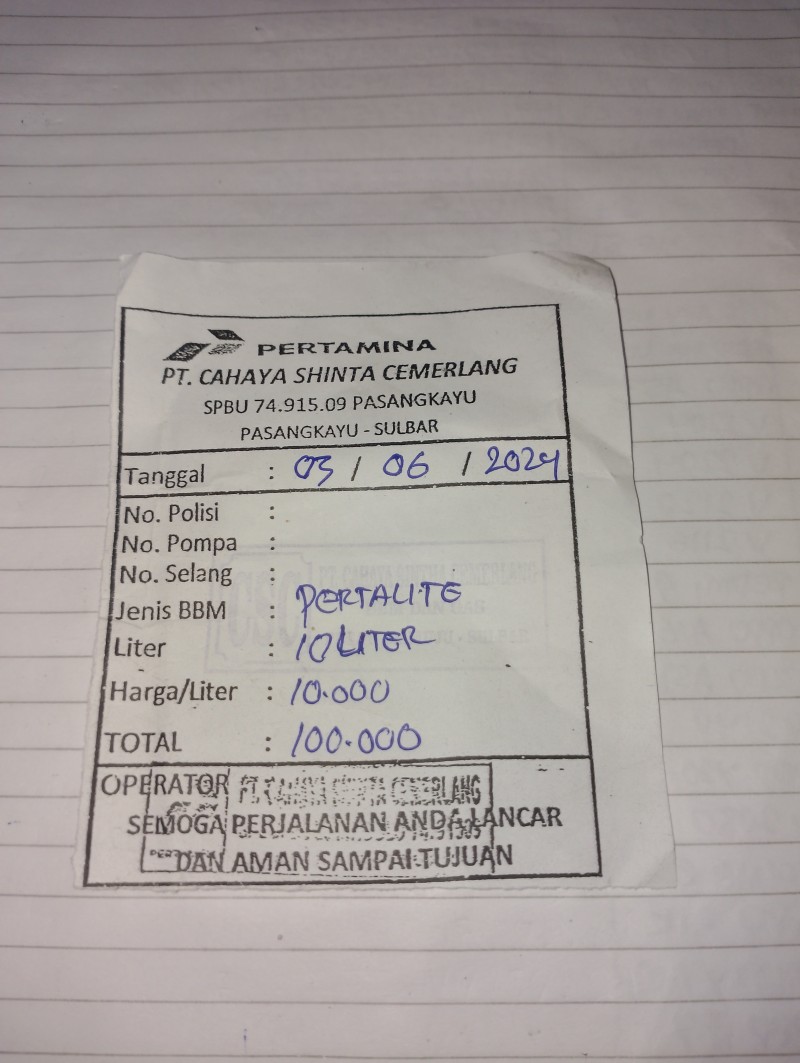 PERTAMINA
PT. CAHAYA SHINTA CEMERLANG
SPBU 74.915.09 PASANGKAYU
PASANGKAYU - SULBAR
Tanggal : 03 / 06 / 2024
No. Polisi :
No. Pompa :
No. Selang :
Jenis BBM : PERTALITE
Liter : 10 LITER
Harga/Liter : 10.000
TOTAL : 100.000
OPERATOR
PT. CAHAYA SHINTA CEMERLANG
SEMOGA PERJALANAN ANDA LANCAR
DAN AMAN SAMPAI TUJUAN